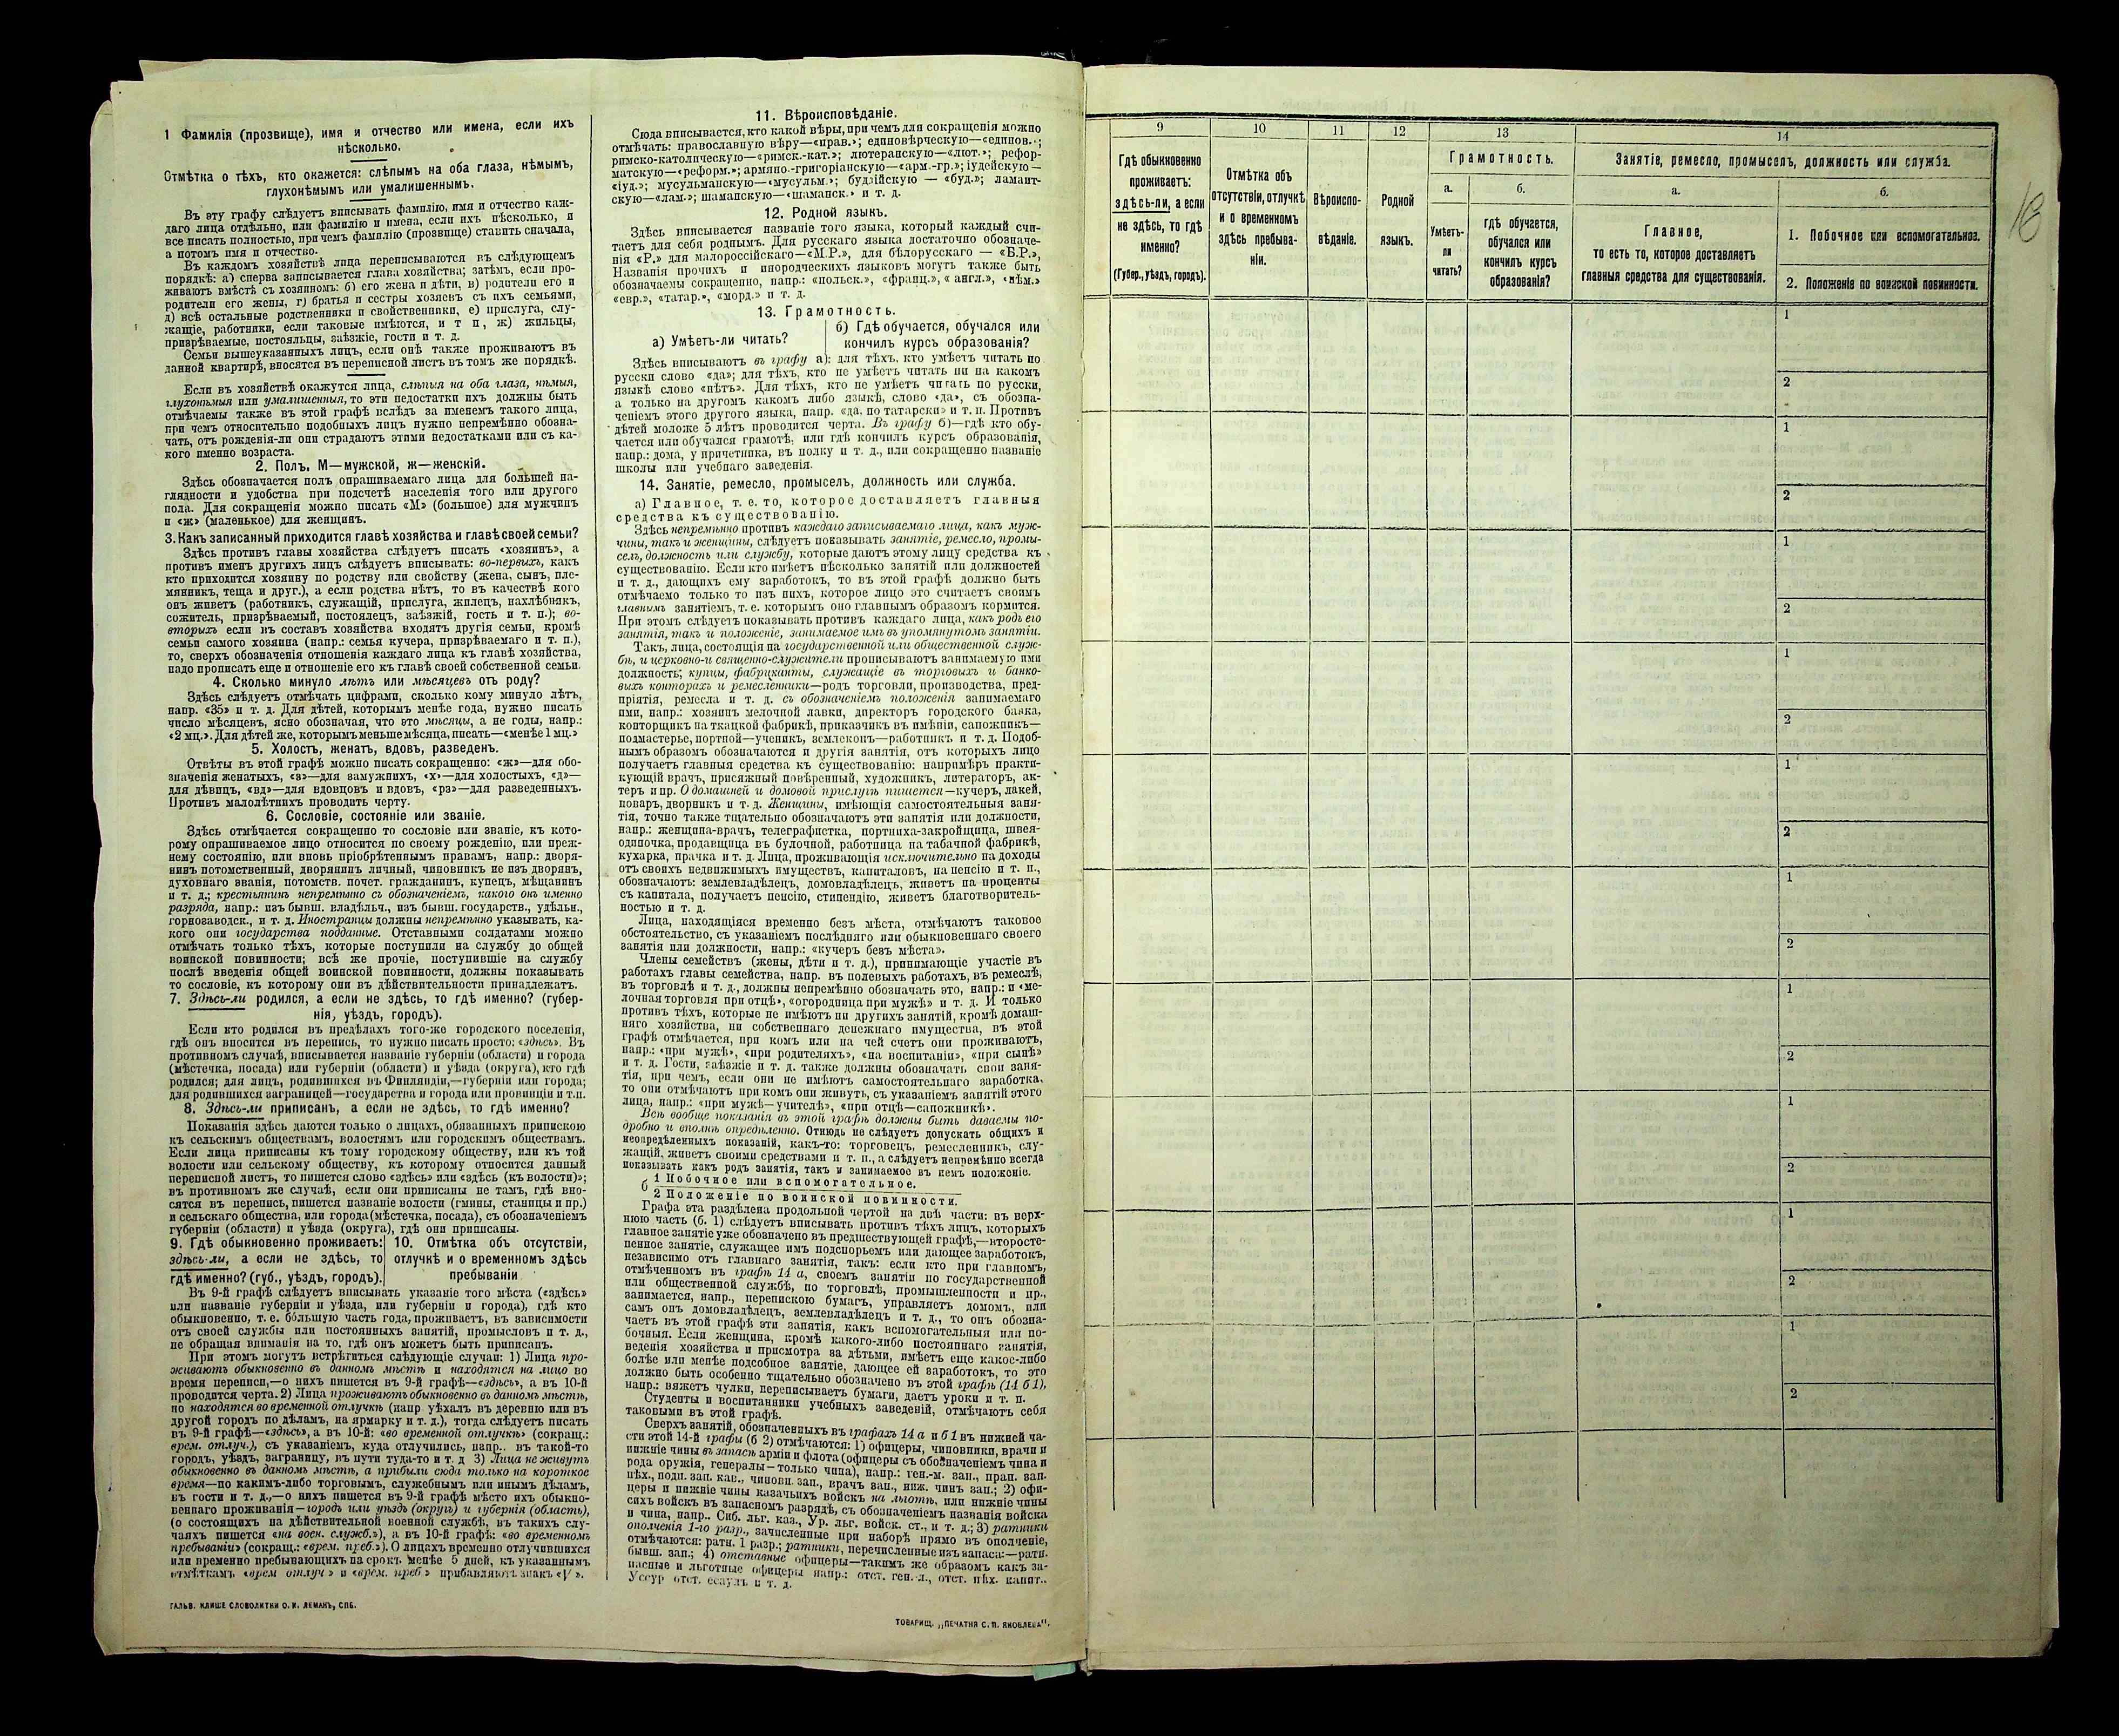 1 Фамилія (прозвище), имя и отчество или имена, если ихъ
нѣсколько.
Отмѣтка о тѣхъ, кто окажется: слѣпымъ на оба глаза, нѣмымъ,
глухонѣмымъ или умалишеннымъ.
Въ эту графу слѣдуетъ вписывать фамилію, имя и отчество каж-
даго лица отдѣльно, или фамилію и имена, если ихъ нѣсколько, и
все писать полностью, при чемъ фамилію (прозвище) ставить сначала,
а потомъ имя и отчество.
Въ каждомъ хозяйствѣ лица переписываются въ слѣдующемъ
порядкѣ: а) сперва записывается глава хозяйства; затѣмъ, если про-
живаютъ вмѣстѣ съ хозяиномъ: б) его жена и дѣти, в) родители его и
родители его жены, г) братья и сестры хозяевъ съ ихъ семьями,
д) всѣ остальные родственники и свойственники, е) прислуга, слу-
жащіе, работники, если таковые имѣются, и т п, ж) жильцы,
призрѣваемые, постояльцы, заѣзжіе, гости и т. д.
Семьи вышеуказанныхъ лицъ, если онѣ также проживаютъ въ
данной квартирѣ, вносятся въ переписной листъ въ томъ же порядкѣ.
Если въ хозяйствѣ окажутся лица, слѣпыя на оба глаза, нѣмыя,
глухонѣмыя или умалишенныя, то эти недостатки ихъ должны быть
отмѣчаемы также въ этой графѣ вслѣдъ за именемъ такого лица,
при чемъ относительно подобныхъ лицъ нужно непремѣнно обозна-
чать, отъ рожденія-ли они страдаютъ этими недостатками или съ ка-
кого именно возраста.
2. Полъ. М—мужской, ж—женскій.
Здѣсь обозначается полъ опрашиваемаго лица для большей на-
глядности и удобства при подсчетѣ населенія того или другого
пола. Для сокращенія можно писать «М» (большое) для мужчинъ
и «ж» (маленькое) для женщинъ.
3. Какъ записанный приходится главѣ хозяйства и главѣ своей семьи?
Здѣсь противъ главы хозяйства слѣдуетъ писать «хозяинъ», а
противъ именъ другихъ лицъ слѣдуетъ вписывать: во-первыхъ, какъ
кто приходится хозяину по родству или свойству (жена, сынъ, пле-
мянникъ, теща и друг.), а если родства нѣтъ, то въ качествѣ кого
онъ живетъ (работникъ, служащій, прислуга, жилецъ, нахлѣбникъ,
сожитель, призрѣваемый, постоялецъ, заѣзжій, гость и т. п.); во-
вторыхъ если въ составъ хозяйства входятъ другія семьи, кромѣ
семьи самого хозяина (напр.: семья кучера, призрѣваемаго и т. п.),
то, сверхъ обозначенія отношенія каждаго лица къ главѣ хозяйства,
надо прописать еще и отношеніе его къ главѣ своей собственной семьи.
4. Сколько минуло лѣтъ или мѣсяцевъ отъ роду?
Здѣсь слѣдуетъ отмѣчать цифрами, сколько кому минуло лѣтъ,
напр. «35» и т. д. Для дѣтей, которымъ менѣе года, нужно писать
число мѣсяцевъ, ясно обозначая, что это мѣсяцы, а не годы, напр.:
«2 мц.». Для дѣтей же, которымъ меньше мѣсяца, писать—«менѣе 1 мц.»
5. Холостъ, женатъ, вдовъ, разведенъ.
Отвѣты въ этой графѣ можно писать сокращенно: «ж»—для обо-
значенія женатыхъ, «з»—для замужнихъ, «х»—для холостыхъ, «д»—
для дѣвицъ, «вд»—для вдовцовъ и вдовъ, «рз»—для разведенныхъ.
Противъ малолѣтнихъ проводить черту.
6. Сословіе, состояніе или званіе.
Здѣсь отмѣчается сокращенно то сословіе или званіе, къ кото-
рому опрашиваемое лицо относится по своему рожденію, или преж-
нему состоянію, или вновь пріобрѣтеннымъ правамъ, напр.: дворя-
нинъ потомственный, дворянинъ личный, чиновникъ не изъ дворянъ,
духовнаго званія, потомств. почет. гражданинъ, купецъ, мѣщанинъ
и т. д.; крестьянинъ непремѣнно съ обозначеніемъ, какого онъ именно
разряда, напр.: изъ бывш. владѣльч., изъ бывш. государств., удѣльн.,
горнозаводск., и т. д. Иностранцы должны непремѣнно указывать, ка-
кого они государства подданные. Отставными солдатами можно
отмѣчать только тѣхъ, которые поступили на службу до общей
воинской повинности; всѣ же прочіе, поступившіе на службу
послѣ введенія общей воинской повинности, должны показывать
то сословіе, къ которому они въ дѣйствительности принадлежатъ.
7. Здѣсь-ли родился, а если не здѣсь, то гдѣ именно? (губер-
нія, уѣздъ, городъ).
Если кто родился въ предѣлахъ того-же городского поселенія,
гдѣ онъ вносится въ перепись, то нужно писать просто: «здѣсь». Въ
противномъ случаѣ, вписывается названіе губерніи (области) и города
(мѣстечка, посада) или губерніи (области) и уѣзда (округа), кто гдѣ
родился; для лицъ, родившихся въ Финляндіи,—губерніи или города;
для родившихся заграницей—государства и города или провинціи и т.п.
8. Здѣсь-ли приписанъ, а если не здѣсь, то гдѣ именно?
Показанія здѣсь даются только о лицахъ, обязанныхъ припискою
къ сельскимъ обществамъ, волостямъ или городскимъ обществамъ.
Если лица приписаны къ тому городскому обществу, или къ той
волости или сельскому обществу, къ которому относится данный
переписной листъ, то пишется слово «здѣсь» или «здѣсь (къ волости)»;
въ противномъ же случаѣ, если они приписаны не тамъ, гдѣ вно-
сятся въ перепись, пишется названіе волости (гмины, станицы и пр.)
и сельскаго общества, или города (мѣстечка, посада), съ обозначеніемъ
губерніи (области) и уѣзда (округа), гдѣ они приписаны.
9. Гдѣ обыкновенно проживаетъ:
здѣсь-ли, а если не здѣсь, то
гдѣ именно? (губ., уѣздъ, городъ).
10. Отмѣтка объ отсутствіи,
отлучкѣ и о временномъ здѣсь
пребываніи
Въ 9-й графѣ слѣдуетъ вписывать указаніе того мѣста («здѣсь»
или названіе губерніи и уѣзда, или губерніи и города), гдѣ кто
обыкновенно, т. е. бо́льшую часть года, проживаетъ, въ зависимости
отъ своей службы или постоянныхъ занятій, промысловъ и т. д.,
не обращая вниманія на то, гдѣ онъ можетъ быть приписанъ.
При этомъ могутъ встрѣтиться слѣдующіе случаи: 1) Лица про-
живаютъ обыкновенно въ данномъ мѣстѣ и находятся на лицо во
время переписи,—о нихъ пишется въ 9-й графѣ—«здѣсь», а въ 10-й
проводится черта. 2) Лица проживаютъ обыкновенно въ данномъ мѣстѣ,
но находятся во временной отлучкѣ (напр уѣхалъ въ деревню или въ
другой городъ по дѣламъ, на ярмарку и т. д.), тогда слѣдуетъ писать
въ 9-й графѣ—«здѣсь», а въ 10-й: «во временной отлучкѣ» (сокращ.:
врем. отлуч.), съ указаніемъ, куда отлучились, напр.. въ такой-то
городъ, уѣздъ, заграницу, въ пути туда-то и т. д 3) Лица не живутъ
обыкновенно въ данномъ мѣстѣ, а прибыли сюда только на короткое
время—по какимъ-либо торговымъ, служебнымъ или инымъ дѣламъ,
въ гости и т. д.,—о нихъ пишется въ 9-й графѣ мѣсто ихъ обыкно-
веннаго проживанія—городъ или уѣздъ (округъ) и губернія (область),
(о состоящихъ на дѣйствительной военной службѣ, въ такихъ слу-
чаяхъ пишется «на воен. служб.»), а въ 10-й графѣ: «во временномъ
пребываніи» (сокращ.: «врем. преб.»). О лицахъ временно отлучившихся
или временно пребывающихъ на срокъ менѣе 5 дней, къ указаннымъ
отмѣткамъ «врем отлуч» и «врем. преб» прибавляютъ знакъ «V».
ГАЛЬВ. КЛИШЕ СЛОВОЛИТНИ О. И. ЛЕМАНЪ, СПБ.
11. Вѣроисповѣданіе.
Сюда вписывается, кто какой вѣры, при чемъ для сокращенія можно
отмѣчать: православную вѣру—«прав.»; единовѣрческую—«единов.»;
римско-католическую—«римск.-кат.»; лютеранскую—«лют.»; рефор-
матскую—«реформ.»; армяно.-григоріанскую—«арм.-гр.»; іудейскую—
«іуд.»; мусульманскую—«мусульм.»; буддійскую — «буд.»; ламаит-
скую—«лам.»; шаманскую—«шаманск.» и т. д.
12. Родной языкъ.
Здѣсь вписывается названіе того языка, который каждый счи-
таетъ для себя роднымъ. Для русскаго языка достаточно обозначе-
нія «Р.» для малороссійскаго—«М.Р.», для бѣлорусскаго — «Б.Р.»,
Названія прочихъ и инородческихъ языковъ могутъ также быть
обозначаемы сокращенно, напр.: «польск.», «франц.», «англ.», «нѣм.»
«евр.», «татар.», «морд.» и т. д.
13. Грамотность.
а) Умѣетъ-ли читать?
б) Гдѣ обучается, обучался или
кончилъ курсъ образованія?
Здѣсь вписываютъ въ графу а): для тѣхъ, кто умѣетъ читать по
русски слово «да»; для тѣхъ, кто не умѣетъ читать ни на какомъ
языкѣ слово «нѣтъ». Для тѣхъ, кто не умѣетъ читать по русски,
а только на другомъ какомъ либо языкѣ, слово «да», съ обозна-
ченіемъ этого другого языка, напр. «да. по татарски» и т. п. Противъ
дѣтей моложе 5 лѣтъ проводится черта. Въ графу б)—гдѣ кто обу-
чается или обучался грамотѣ, или гдѣ кончилъ курсъ образованія,
напр.: дома, у причетника, въ полку и т. д., или сокращенно названіе
школы или учебнаго заведенія.
14. Занятіе, ремесло, промыселъ, должность или служба.
а) Главное, т. е. то, которое доставляетъ главныя
средства къ существованію.
Здѣсь непремѣнно противъ каждаго записываемаго лица, какъ муж-
чины, такъ и женщины, слѣдуетъ показывать занятіе, ремесло, промы-
селъ, должность или службу, которые даютъ этому лицу средства къ
существованію. Если кто имѣетъ нѣсколько занятій или должностей
и т. д., дающихъ ему заработокъ, то въ этой графѣ должно быть
отмѣчаемо только то изъ нихъ, которое лицо это считаетъ своимъ
главнымъ занятіемъ, т. е. которымъ оно главнымъ образомъ кормится.
При этомъ слѣдуетъ показывать противъ каждаго лица, какъ родъ его
занятія, такъ и положеніе, занимаемое имъ въ упомянутомъ занятіи.
Такъ, лица, состоящія на государственной или общественной служ-
бѣ, и церковно-и священно-служители прописываютъ занимаемую ими
должность; купцы, фабриканты, служащіе въ торговыхъ и банко-
выхъ конторахъ и ремесленники—родъ торговли, производства, пред-
пріятія, ремесла и т. д. съ обозначеніемъ положенія занимаемаго
ими, напр.: хозяинъ мелочной лавки, директоръ городского банка,
конторщикъ на ткацкой фабрикѣ, приказчикъ въ имѣніи, сапожникъ—
подмастерье, портной—ученикъ, землекопъ—работникъ и т. д. Подоб-
нымъ образомъ обозначаются и другія занятія, отъ которыхъ лицо
получаетъ главныя средства къ существованію: напримѣръ практи-
кующій врачъ, присяжный повѣренный, художникъ, литераторъ, ак-
теръ и пр. О домашней и домовой прислугѣ пишется—кучеръ, лакей,
поваръ, дворникъ и т. д. Женщины, имѣющія самостоятельныя заня-
тія, точно также тщательно обозначаютъ эти занятія или должности,
напр.: женщина-врачъ, телеграфистка, портниха-закройщица, швея-
одиночка, продавщица въ булочной, работница на табачной фабрикѣ,
кухарка, прачка и т. д. Лица, проживающія исключительно на доходы
отъ своихъ недвижимыхъ имуществъ, капиталовъ, на пенсію и т. п.,
обозначаютъ: землевладѣлецъ, домовладѣлецъ, живетъ на проценты
съ капитала, получаетъ пенсію, стипендію, живетъ благотворитель-
ностью и т. д.
Лица, находящіяся временно безъ мѣста, отмѣчаютъ таковое
обстоятельство, съ указаніемъ послѣдняго или обыкновеннаго своего
занятія или должности, напр.: «кучеръ безъ мѣста».
Члены семействъ (жены, дѣти и т. д.), принимающіе участіе въ
работахъ главы семейства, напр. въ полевыхъ работахъ, въ ремеслѣ,
въ торговлѣ и т. д., должны непремѣнно обозначать это, напр.: и «ме-
лочная торговля при отцѣ», «огородница при мужѣ» и т. д. И только
противъ тѣхъ, которые не имѣютъ ни другихъ занятій, кромѣ домаш-
няго хозяйства, ни собственнаго денежнаго имущества, въ этой
графѣ отмѣчается, при комъ или на чей счетъ они проживаютъ,
напр.: «при мужѣ», «при родителяхъ», «на воспитаніи», «при сынѣ»
и т. д. Гости, заѣзжіе и т. д. также должны обозначать свои заня-
тія, при чемъ, если они не имѣютъ самостоятельнаго заработка,
то они отмѣчаютъ при комъ они живутъ, съ указаніемъ занятій этого
лица, напр.: «при мужѣ—учителѣ», «при отцѣ—сапожникѣ».
Всѣ вообще показанія въ этой графѣ должны быть даваемы по-
дробно и вполнѣ опредѣленно. Отнюдь не слѣдуетъ допускать общихъ и
неопредѣленныхъ показаній, какъ-то: торговецъ, ремесленникъ, слу-
жащій, живетъ своими средствами и т. п., а слѣдуетъ непремѣнно всегда
показывать какъ родъ занятія, такъ и занимаемое въ немъ положеніе.
б 1 Побочное или вспомогательное.
2 Положеніе по воинской повинности.
Графа эта раздѣлена продольной чертой на двѣ части: въ верх-
нюю часть (б. 1) слѣдуетъ вписывать противъ тѣхъ лицъ, которыхъ
главное занятіе уже обозначено въ предшествующей графѣ,—второсте-
пенное занятіе, служащее имъ подспорьемъ или дающее заработокъ,
независимо отъ главнаго занятія, такъ: если кто при главномъ,
отмѣченномъ въ графѣ 14 а, своемъ занятіи по государственной
или общественной службѣ, по торговлѣ, промышленности и пр.,
занимается, напр., перепискою бумагъ, управляетъ домомъ, или
самъ онъ домовладѣлецъ, землевладѣлецъ и т. д., то онъ обозна-
чаетъ въ этой графѣ эти занятія, какъ вспомогательныя или по-
бочныя. Если женщина, кромѣ какого-либо постояннаго занятія,
веденія хозяйства и присмотра за дѣтьми, имѣетъ еще какое-либо
болѣе или менѣе подсобное занятіе, дающее ей заработокъ, то это
должно быть особенно тщательно обозначено въ этой графѣ (14 б 1),
напр.: вяжетъ чулки, переписываетъ бумаги, даетъ уроки и т. п.
Студенты и воспитанники учебныхъ заведеній, отмѣчаютъ себя
таковыми въ этой графѣ.
Сверхъ занятій, обозначенныхъ въ графахъ 14 а и б 1 въ нижней ча-
сти этой 14-й графы (б 2) отмѣчаются: 1) офицеры, чиновники, врачи и
нижніе чины въ запасѣ арміи и флота (офицеры съ обозначеніемъ чина и
рода оружія, генералы—только чина), напр.: ген.-м. зап., прап. зап.
пѣх., подп. зап. кав., чиновн. зап., врачъ зап., ниж. чинъ зап.; 2) офи-
церы и нижніе чины казачьихъ войскъ на льготѣ, или нижніе чины
сихъ войскъ въ запасномъ разрядѣ, съ обозначеніемъ названія войска
и чина, напр.. Сиб. льг. каз., Ур. льг. войск. ст., и т. д.; 3) ратники
ополченія 1-го разр., зачисленные при наборѣ прямо въ ополченіе,
отмѣчаются: ратн. 1 разр.; ратники, перечисленные изъ запаса:—ратн.
бывш. зап.; 4) отставные офицеры—такимъ же образомъ какъ за-
пасные и льготные офицеры напр.: отст. ген.-л., отст. пѣх. капит..
Уссур отст. есаулъ и т. д.
ТОВАРИЩ. „ПЕЧАТНЯ С. П. ЯКОВЛЕВА".
9
10
11
12
13
14
Гдѣ обыкновенно
проживаетъ:
здѣсь-ли, а если
не здѣсь, то гдѣ
именно?
(Губер., уѣздъ, городъ).
Отмѣтка объ
отсутствіи, отлучкѣ
и о временномъ
здѣсь пребыва-
ніи.
Вѣроиспо-
вѣданіе.
Родной
языкъ.
Грамотность.
а.
б.
Умѣетъ-
ли
читать?
гдѣ обучается,
обучался или
кончилъ курсъ
образованія?
Занятіе, ремесло, промыселъ, должность или служба.
а.
б.
Главное,
то есть то, которое доставляетъ
главныя средства для существованія.
1. Побочное или вспомогательное.
2. Положеніе по воинской повинности.
1
2
1
2
1
2
1
2
1
2
1
2
1
2
1
2
1
2
1
2
18